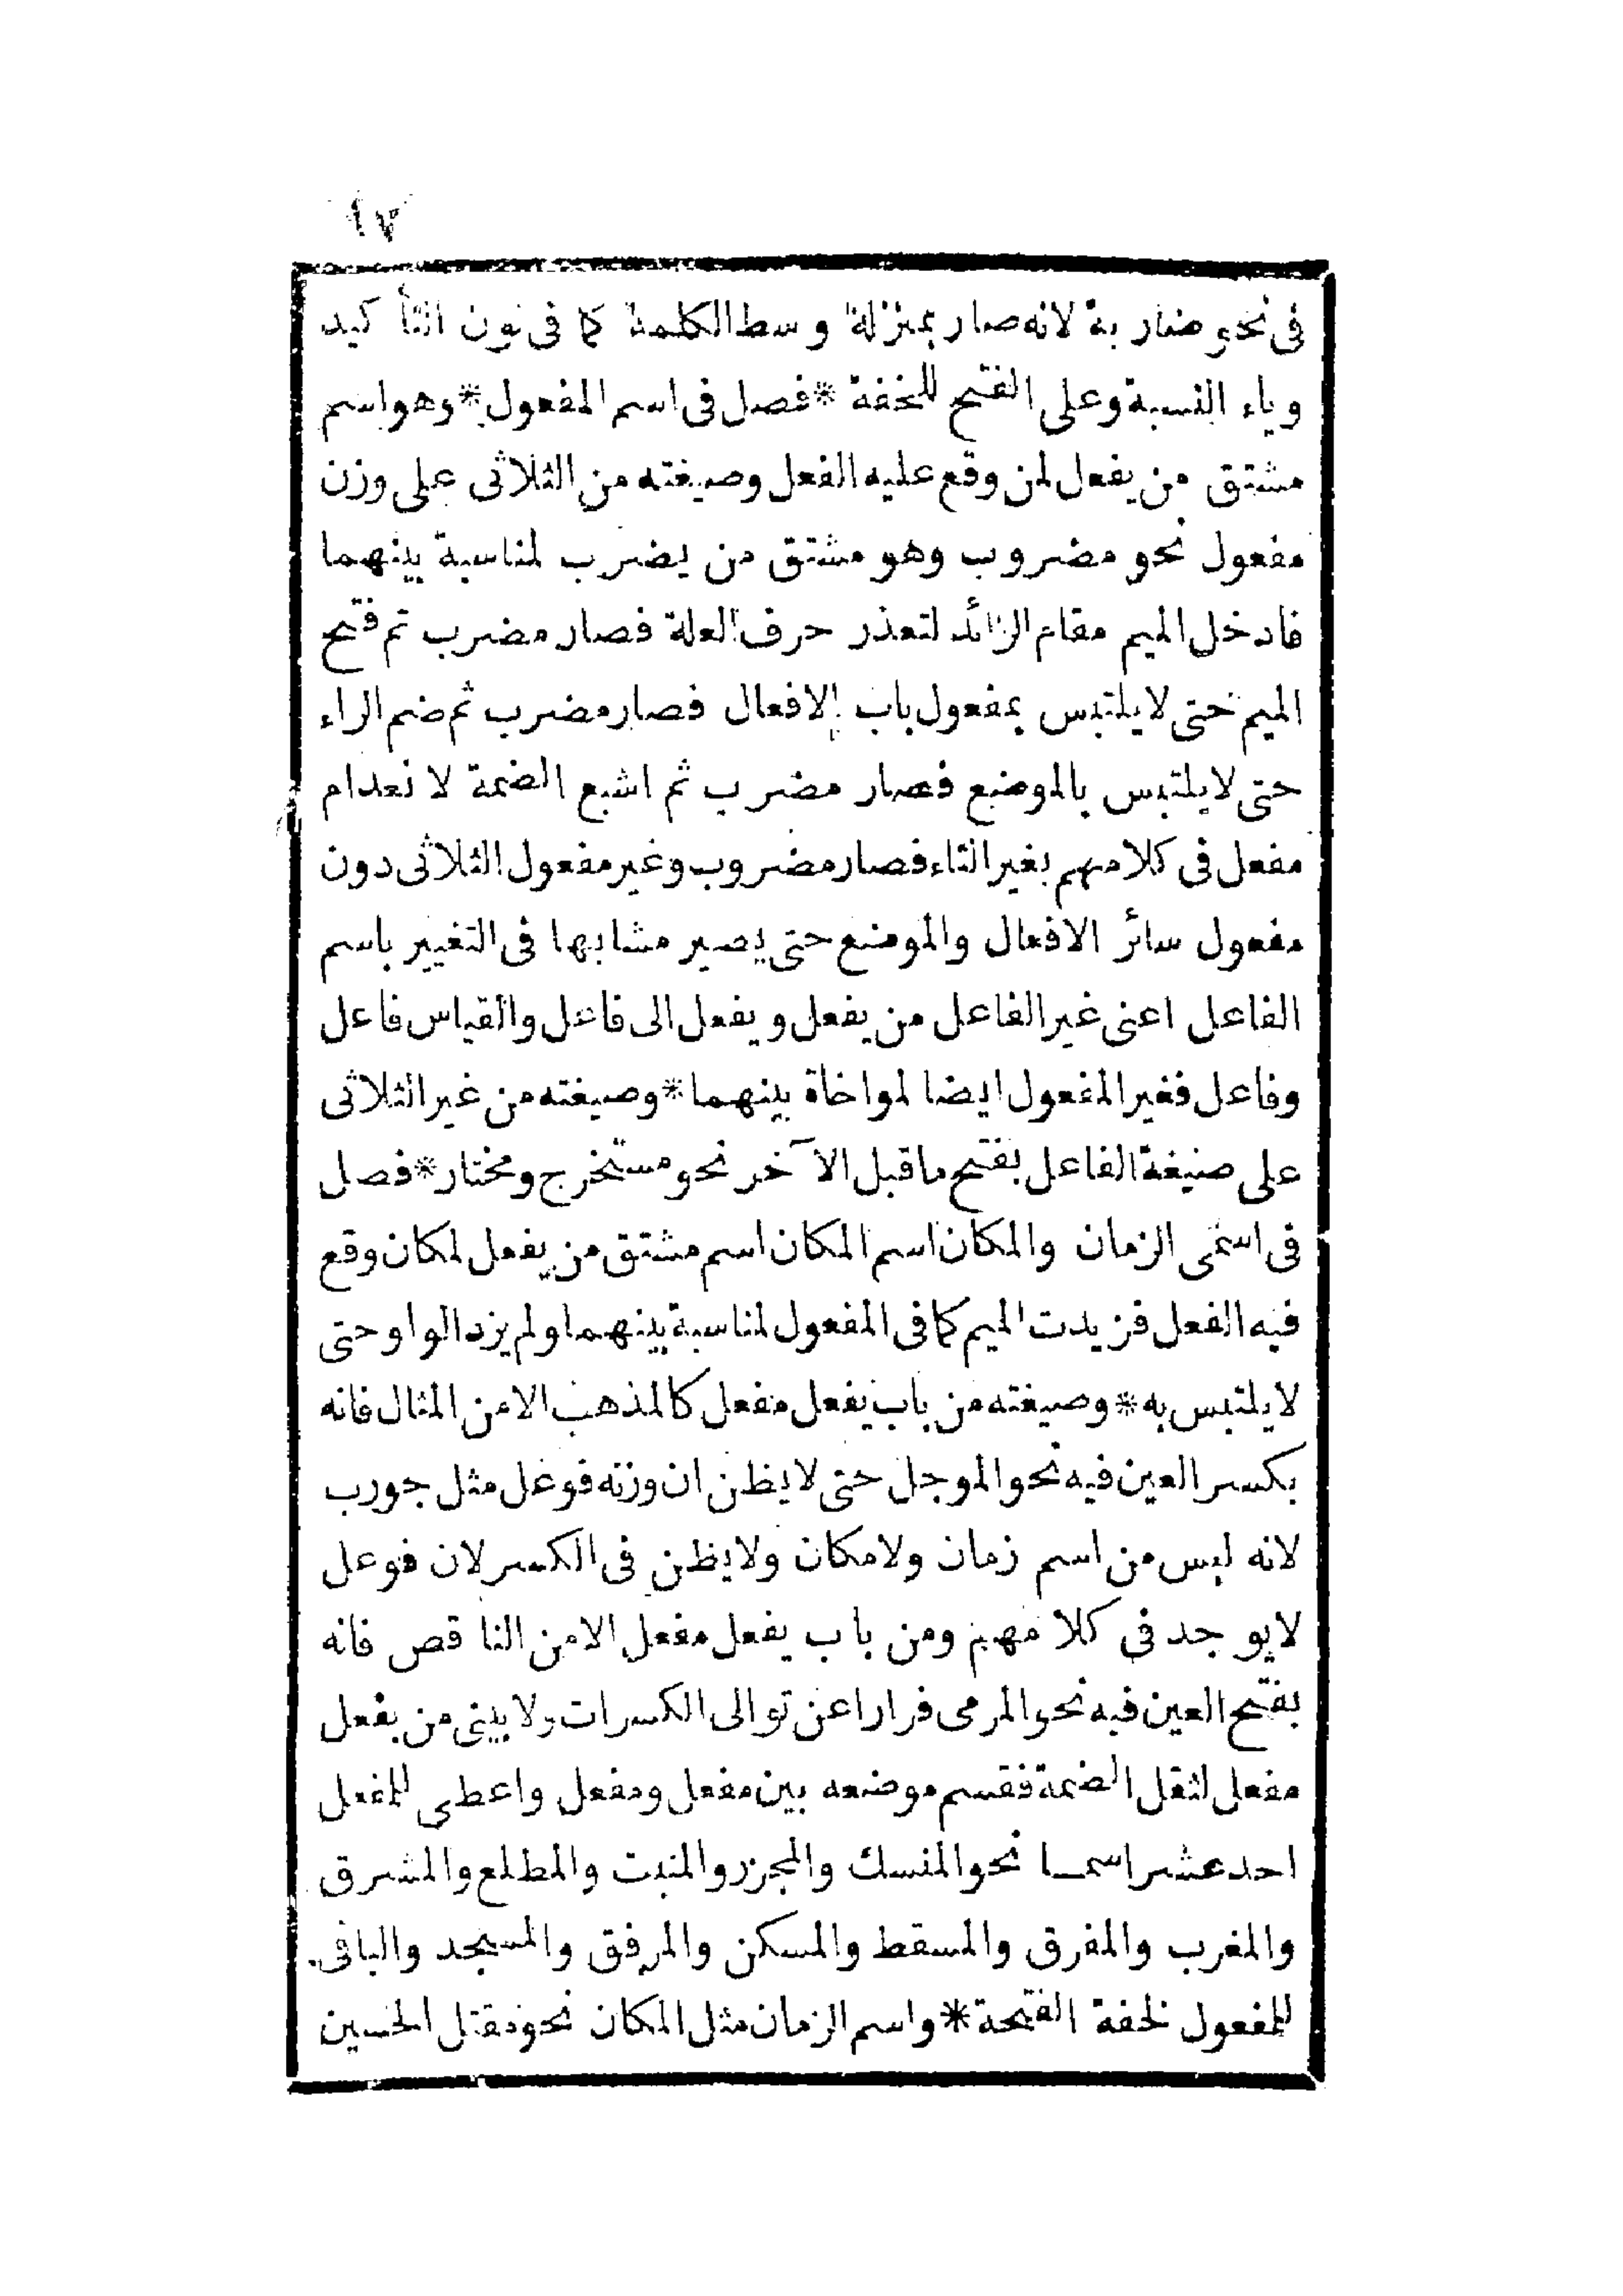 ١٧
فى نحو ضاربة لانه صار بمنزلة وسط الكلمة كما فى نون التأكيد
وياء النسبة وعلى الفتح للخفة * فصل فى اسم المفعول * وهو اسم
مشتق من يفعل لمن وقع عليه الفعل وصيغته من الثلاثى على وزن
مفعول نحو مضروب وهو مشتق من يضرب لمناسبة بينهما
فادخل الميم مقام الزائد لتعذر حرف العلة فصار مضرب ثم فتح
الميم حتى لا يلتبس بمفعول باب الافعال فصار مضرب ثم ضم الراء
حتى لا يلتبس بالموضع فصار مضرب ثم اشبع الضمة لانعدام
مفعل فى كلامهم بغير التاء فصار مضروب وغير مفعول الثلاثى دون
مفعول سائر الافعال والموضع حتى يصير مشابها فى التغيير باسم
الفاعل اعنى غير الفاعل من يفعل ويفعل الى فاعل والقياس فاعل
وفاعل فغير المفعول ايضا لمواخاة بينهما * وصيغته من غير الثلاثى
على صيغة الفاعل بفتح ماقبل الآخر نحو مستخرج ومختار * فصل
فى اسمى الزمان والمكان اسم المكان اسم مشتق من يفعل لمكان وقع
فيه الفعل فزيدت الميم كما فى المفعول لمناسبة بينهما ولم يزد الواو حتى
لا يلتبس به * وصيغته من باب يفعل مفعل كالمذهب الا من المثال فانه
بكسر العين فيه نحو الموجل حتى لا يظن ان وزنه فوعل مثل جورب
لانه ليس من اسم زمان ولا مكان ولا يظن فى الكسر لان فوعل
لا يوجد فى كلامهم ومن باب يفعل مفعل الا من الناقص فانه
بفتح العين فيه نحو المرمى فرارا عن توالى الكسرات ولا يبنى من يفعل
مفعل لثقل الضمة فقسم موضعه بين مفعل ومفعل واعطى للمفعل
احد عشر اسما نحو المنسك والمجزر والمنبت والمطلع والمشرق
والمغرب والمفرق والمسقط والمسكن والمرفق والمسجد والباقى
للمفعول لخفة الفتحة * واسم الزمان مثل المكان نحو مقتل الحسين